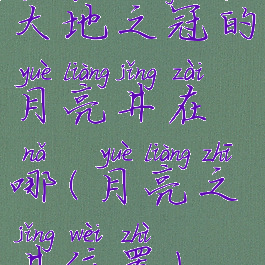 大地之冠的
yuè liàng jǐng zài
月亮井在
nǎ yuè liàng zhī
哪(月亮之
jǐng wèi zhì
井位置)